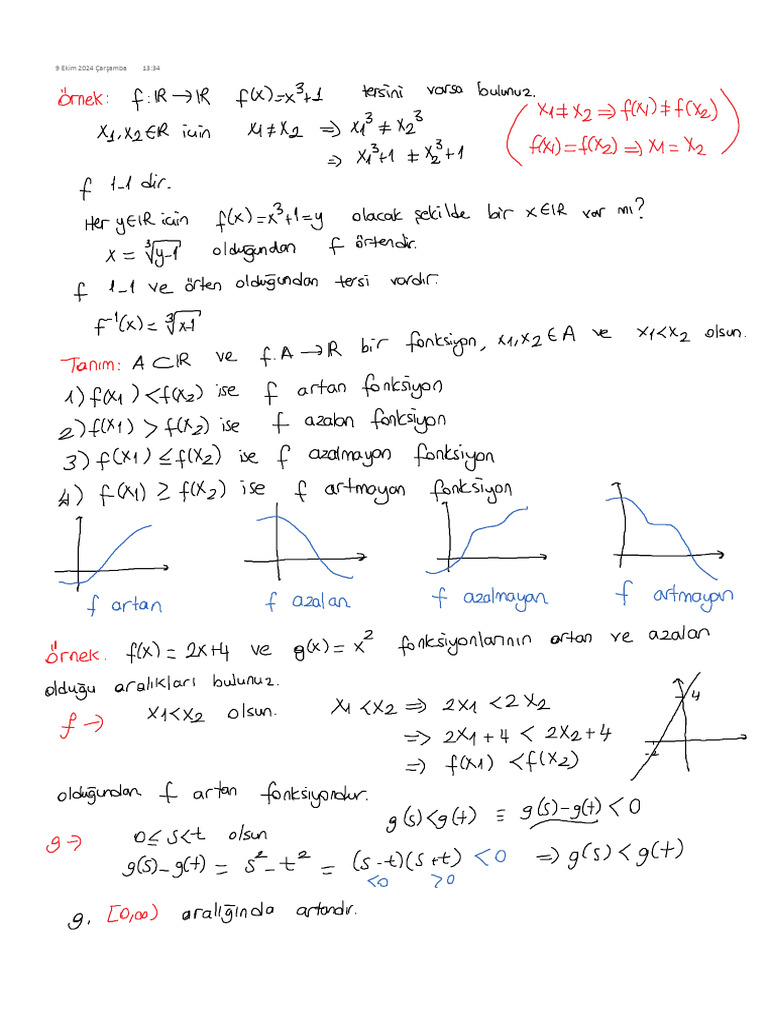 9 Ekim 2024 Çarşamba 13:34
Örnek: f: ℝ → ℝ f(x)=x³+1 tersini varsa bulunuz.
x₁,x₂∈ℝ için x₁≠x₂ ⇒ x₁³ ≠ x₂³
⇒ x₁³+1 ≠ x₂³+1
(x₁≠x₂ ⇒ f(x₁)≠f(x₂)
f(x₁)=f(x₂) ⇒ x₁=x₂)
f 1-1 dir.
Her y∈ℝ için f(x)=x³+1=y olacak şekilde bir x∈ℝ var mı?
x = ∛(y-1) olduğundan f örtendir.
f 1-1 ve örten olduğundan tersi vardır.
f⁻¹(x) = ∛(x-1)
Tanım: A⊂ℝ ve f: A→ℝ bir fonksiyon, x₁,x₂∈A ve x₁<x₂ olsun.
1) f(x₁)<f(x₂) ise f artan fonksiyon
2) f(x₁) > f(x₂) ise f azalan fonksiyon
3) f(x₁) ≤ f(x₂) ise f azalmayan fonksiyon
4) f(x₁) ≥ f(x₂) ise f artmayan fonksiyon
f artan f azalan f azalmayan f artmayan
Örnek. f(x) = 2x+4 ve g(x) = x² fonksiyonlarının artan ve azalan
olduğu aralıkları bulunuz.
f → x₁<x₂ olsun. x₁<x₂ ⇒ 2x₁ < 2x₂
⇒ 2x₁+4 < 2x₂+4
⇒ f(x₁) < f(x₂)
4
-2
olduğundan f artan fonksiyondur.
g(s)<g(t) ≡ g(s)-g(t) < 0
g → 0≤s<t olsun
g(s)-g(t) = s²-t² = (s-t)(s+t) <0 ⇒ g(s) < g(t)
<0 >0
g, [0,∞) aralığında artandır.